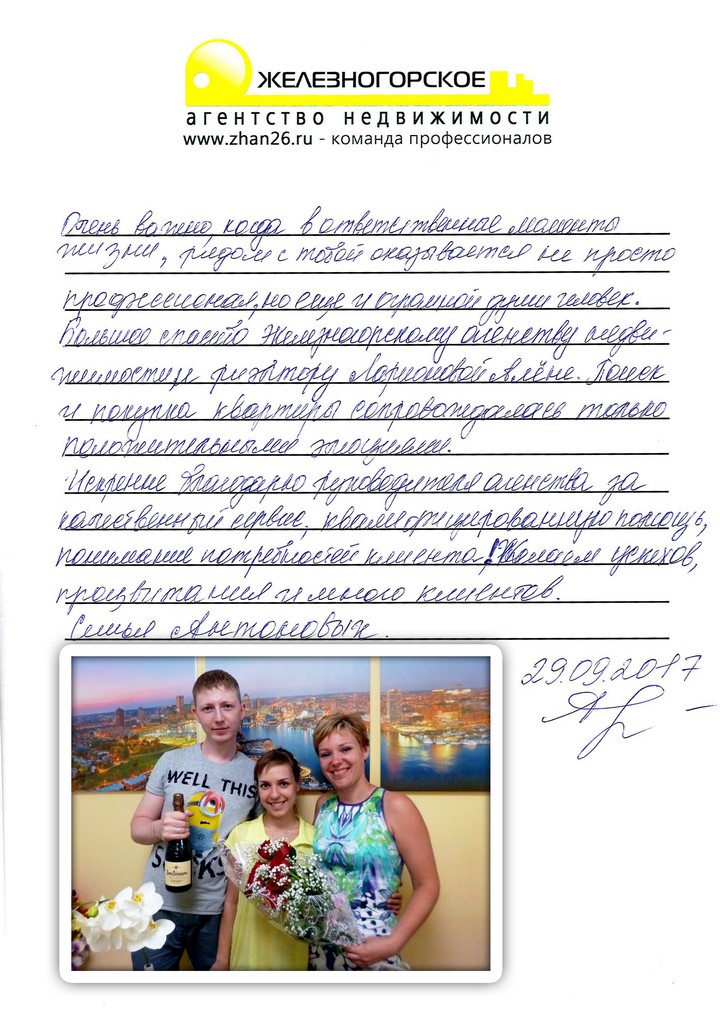 ЖЕЛЕЗНОГОРСКОЕ
агентство недвижимости
www.zhan26.ru - команда профессионалов
Очень важно, когда в ответственные моменты
жизни, рядом с тобой оказывается не просто
профессионал, но ещё и огромной души человек.
Большое спасибо Железногорскому агенству недви-
жимости и риэлтору Ларионовой Алёне. Поиск
и покупка квартиры сопровождалась только
положительными эмоциями.
Искренне благодарю руководителя агенства за
качественный сервис, квалифицированную помощь,
понимание потребностей клиента! Желаем успехов,
процветания и много клиентов.
Семья Антоновых.
29.09.2017
WELL THIS